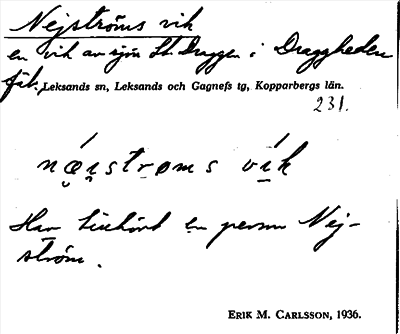 Nejströms vik
en vik av sjön St. Draggen i Draggheden
fäb. Leksands sn, Leksands och Gagnefs tg, Kopparbergs län.
231.
næi̯stroms vík
Har tillhört en person Nej-
ström.
ERIK M. CARLSSON, 1936.